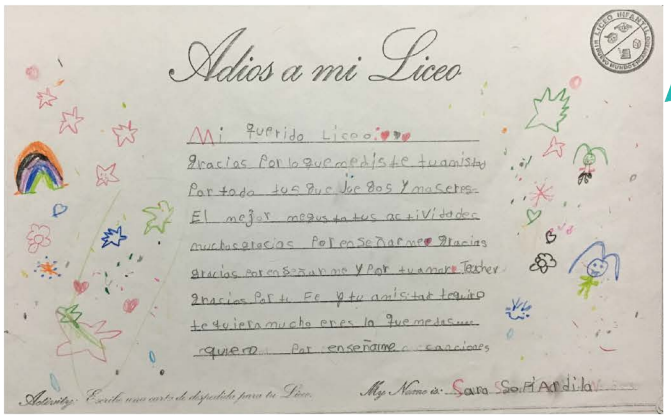 Adios a mi Liceo
LICEO INFANTIL
MI NUEVO MUNDO ENCANTADO
Mi querido Liceo
gracias Por lo que me diste tu amista
Por toda tus que Jue gos y
El mejor me gusta tus actividades
muchas gracias Por enseñarme gracias
gracias por enseñarme y Por tu amor Teacher
gracias Por tu Fe y tu amistad
te quiero mucho eres la que me das
quiero Por enseñarme canciones
Activity: Escribe una carta de despedida para tu Liceo.
My Name is: Sara Sofi Ardila